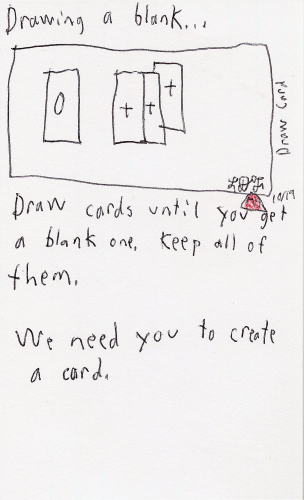 Drawing a blank...
0
+ + +
Draw Card
Draw cards until you get
a blank one. Keep all of
them.
We need you to create
a card.